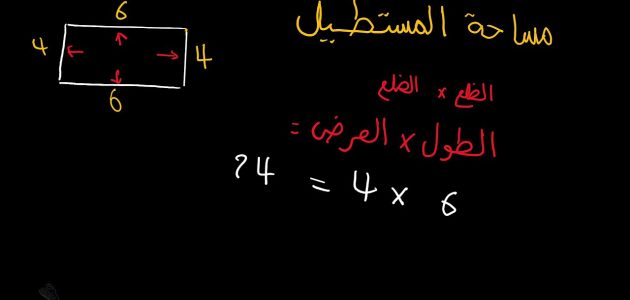 6
4
4
6
مساحة المستطيل
الضلع × الضلع
الطول × العرض =
6 × 4 = 24